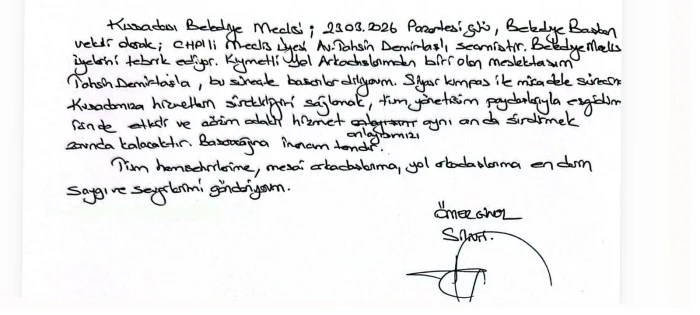 Kuşadası Belediye Meclisi; 23.03.2026 Pazartesi günü, Belediye Başkan
vekili olarak; CHP'li Meclis Üyesi Av. Tahsin Demirtaş'ı seçmiştir. Belediye Meclis
üyelerini tebrik ediyor. Kıymetli Yol Arkadaşlarımdan biri olan meslektaşım
Tahsin Demirtaş'a, bu süreçte başarılar diliyorum. Siyasi kumpas ile mücadele sürecini
Kuşadamıza hizmetlerin sürekliliğini sağlamak, tüm yönetişim paydaşlarıyla eşgüdüm
içinde etkili ve adalet hizmet anlayışımızı aynı anda sürdürmek
zorunda kalacaktır. Başaracağına inancım tamdır.
Tüm hemşehrilerime, mesai arkadaşlarıma, yol arkadaşlarıma en derin
Saygı ve sevgilerimi gönderiyorum.
ÖMER GÜNEL